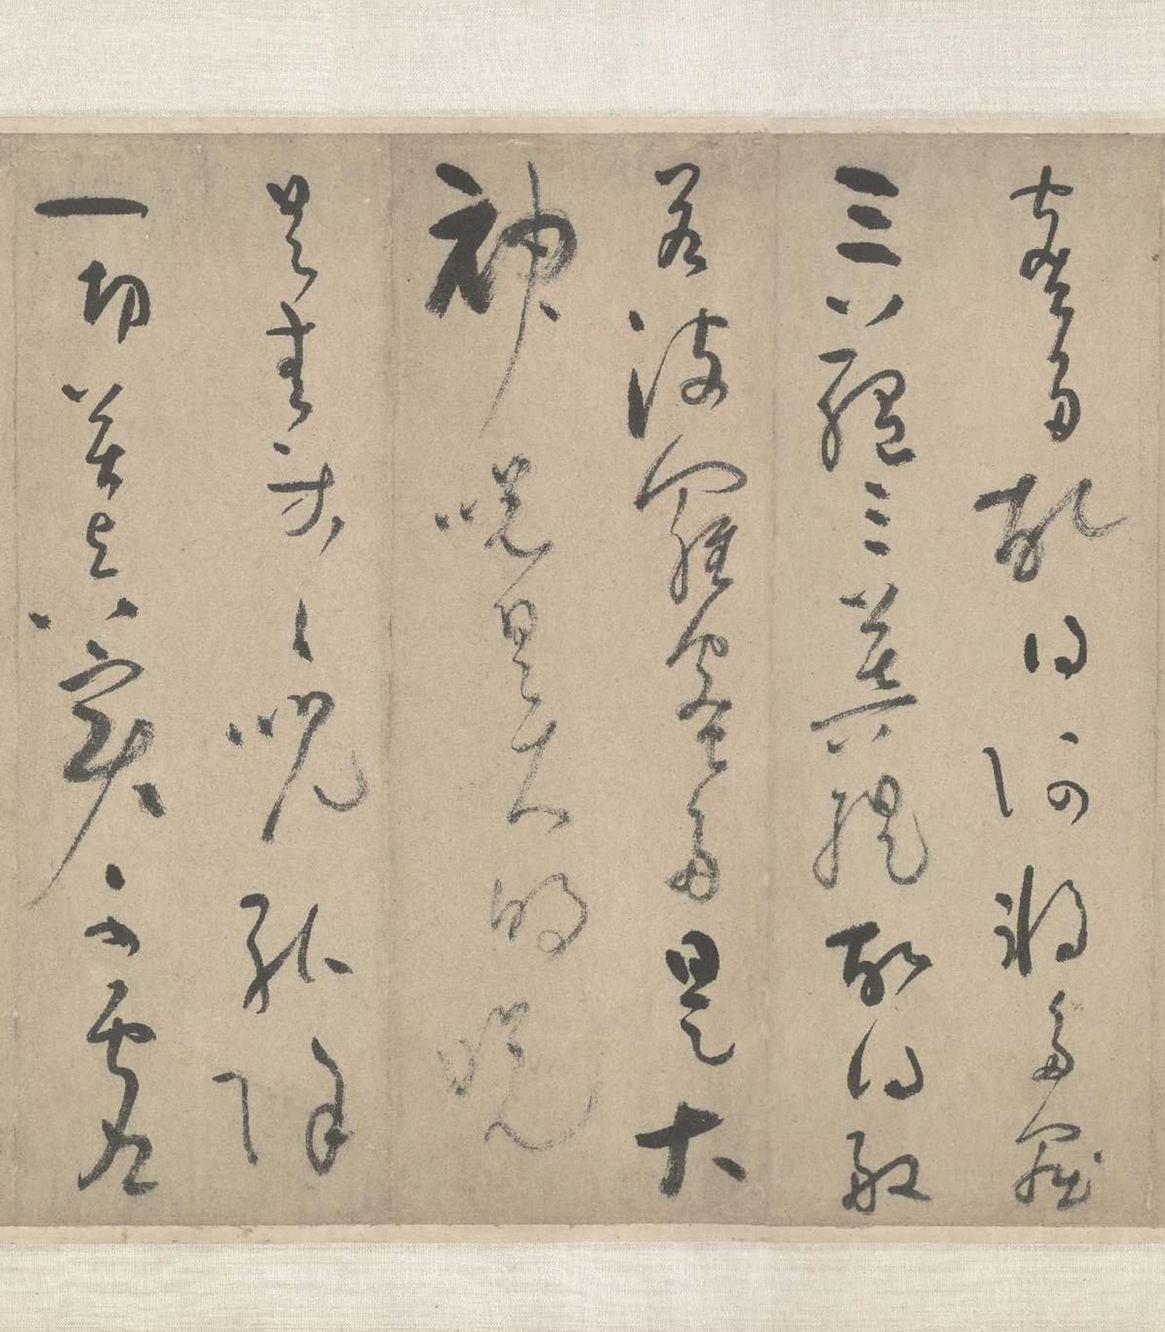 蜜多故得阿耨多羅
三藐三菩提故知般
若波羅蜜多是大
神咒是大明咒
是無等等咒能除
一切苦真實不虛